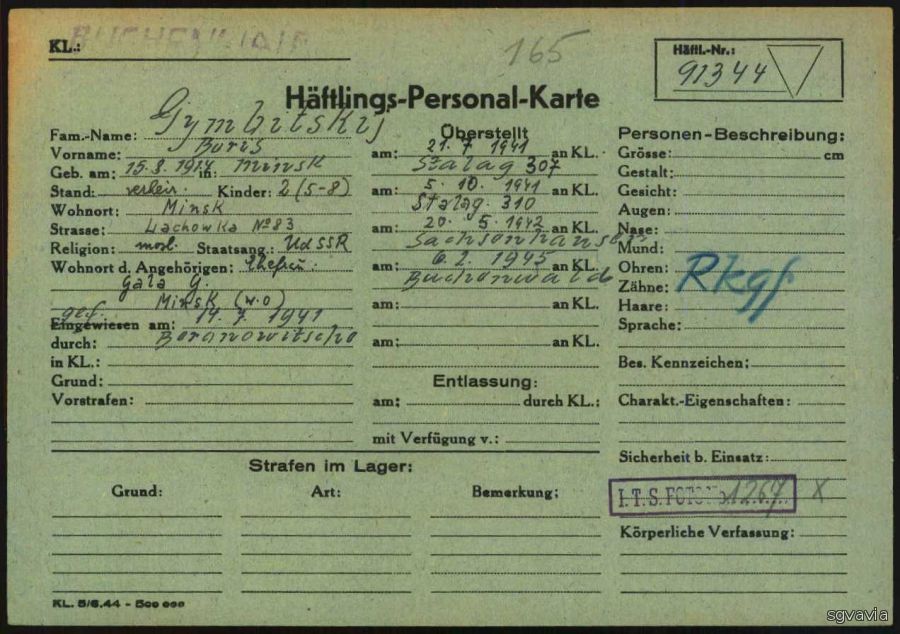 KL.: BUCHENWALD
165
Häftl.-Nr.:
91344
Häftlings-Personal-Karte
Fam.-Name: Gymbitskij
Vorname: Boris
Geb. am: 15.8.1914 in: Minsk
Stand: verheir. Kinder: 2 (5-8)
Wohnort: Minsk
Strasse: Lachowka № 83
Religion: mosl. Staatsang.: UdSSR
Wohnort d. Angehörigen: Ehefrau:
Gala G.
Minsk (w.o)
gef. 14. 7. 1941
Eingewiesen am:
durch: Boranowitscho
in KL.:
Grund:
Vorstrafen:
Überstellt
am: 21. 7. 1941 an KL.
Stalag 307
am: 5. 10. 1941 an KL.
Stalag. 310
am: 20. 5. 1942 an KL.
Sachsenhausen
am: 6. 2. 1945 an KL.
Buchenwald
am: an KL.
am: an KL.
Entlassung:
am: durch KL.:
mit Verfügung v.:
Personen-Beschreibung:
Grösse: cm
Gestalt:
Gesicht:
Augen:
Nase:
Mund:
Ohren:
Zähne:
Rkgf
Haare:
Sprache:
Bes. Kennzeichen:
Charakt.-Eigenschaften:
Sicherheit b. Einsatz:
I.T.S. FOTO No. 1267 X
Körperliche Verfassung:
Strafen im Lager:
Grund: Art: Bemerkung:
KL. 5/6.44 - 500 000
sgvavia